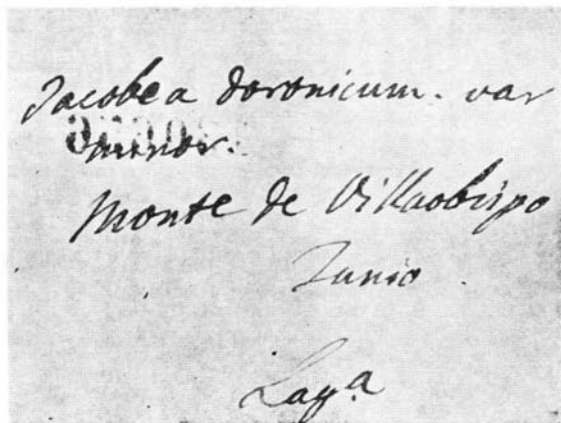 Jacobea doronicum. var
minor.
Monte de Villaobispo
Junio
Lag.a